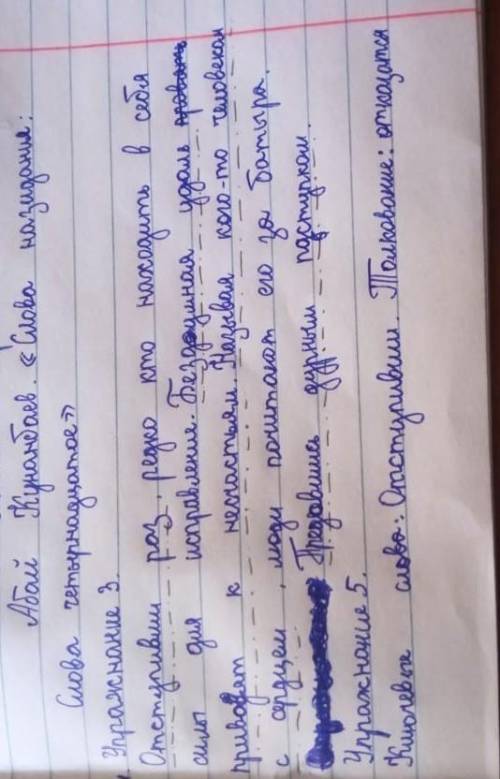 Абай Кунанбаев. «Слова назидания:
Слова четырнадцатое»
Упражнание 3.
Отступивши раз, редко кто находить в себя
силы для исправления. Безрашная удаль
приводит к несчастьям. Называя кого-то человекам
с сердцем, люди почитают его за батыра.
Предовшись дурным паступкам.
Упражнание 5.
Ключевые слова: Отступивши. Толкование: отказатся